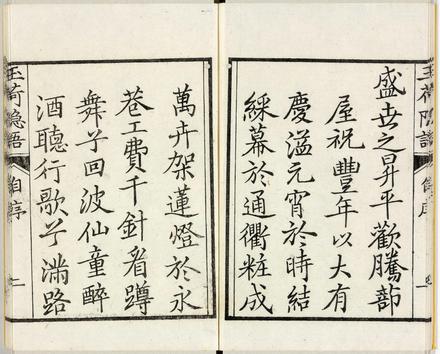 盛世之昇平歡騰蔀
屋祝豐年以大有
慶溢元宵於時結
綵幕於通衢粧成
萬卉架蓮燈於永
巷工費千針看蹲
舞兮回波仙童醉
酒聽行歌兮滿路
玉荷隱語
自序
二